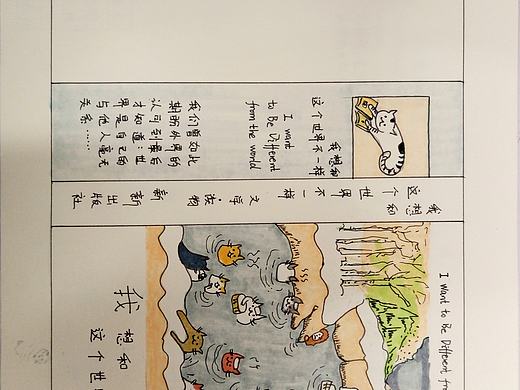 我想和
这个世界不一样
I want
to Be Different
from the world
我们曾如此
期盼外界的
认可到最后
才知道:世
界是自己的
与他人毫无
关系……
我想和
这个世界不一样
文学·读物
新新出版社
I Want to Be Different fro
我想和
这个世